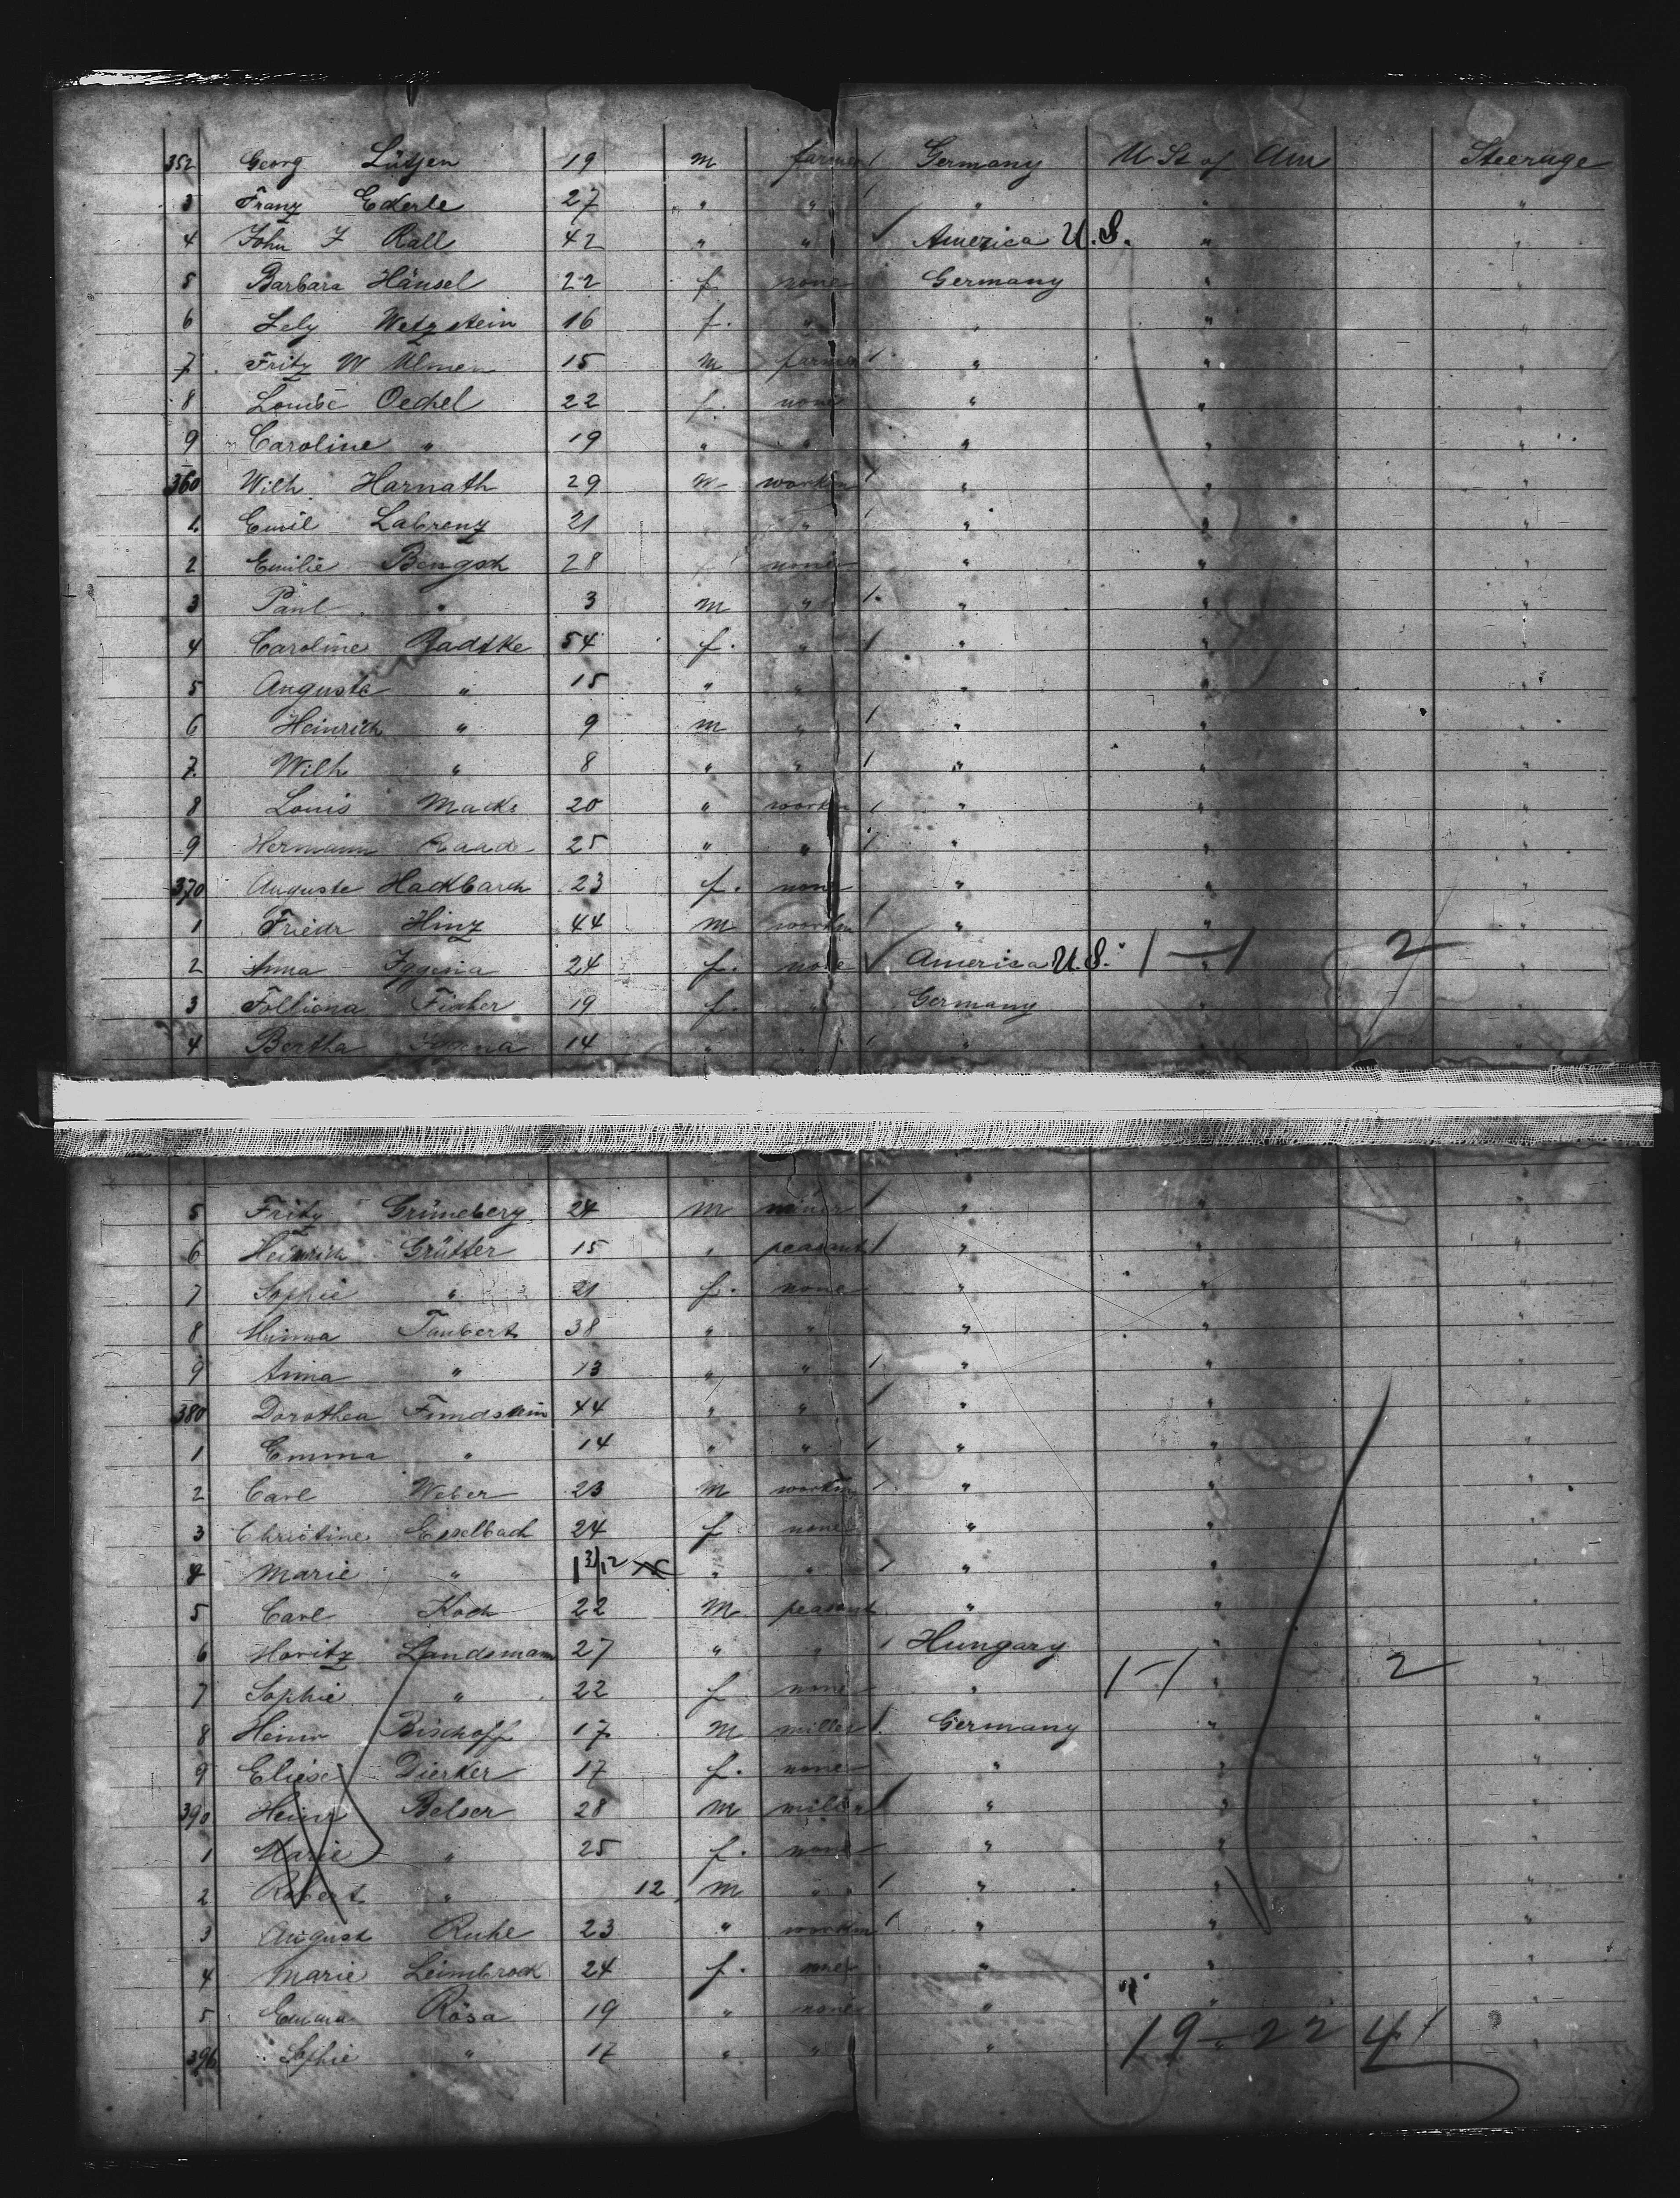 352 Georg Lütjen 19 m farmer / Germany U St of Am Steerage
3 Franz Ederle 27 " " / " " "
4 John F Rall 42 " " ✓ America U.S. " "
5 Barbara Hänsel 22 f none Germany " "
6 Lely Wetzstein 16 f. " " " "
7 Fritz W Ulmen 15 m farmer / " " "
8 Louise Oechel 22 f. none " " "
9 Caroline " 19 " " " " "
360 Wilh. Harnath 29 m workm / " " "
1 Emil Labrenz 21 " / " " "
2 Emilie Bengsch 28 none " " "
3 Paul " 3 m " / " " "
4 Caroline Radtke 54 f. " / " " "
5 Auguste " 15 " " " " "
6 Heinrich " 9 m " / " " "
7 Wilh " 8 " " / " " "
8 Louis Macks 20 " workm / " " "
9 Hermann 25 " " / " " "
370 Auguste Hackbarth 23 f. none " " "
1 Friedr Hinz 44 m workm / " " "
2 Anna 24 f. none ✓ America U.S. 1-1 " 2 "
3 Fischer 19 f. " Germany " "
4 Bertha 14 " " / " " "
5 Fritz Grüneberg 24 m miner / " " "
6 Heinrich Grütter 15 " peasant / " " "
7 Sophie " 21 f. none " " "
8 Minna Taubert 38 " " " " "
9 Anna " 13 " " / " " "
380 Dorothea Fundstein 44 " " / " " "
1 Emma " 14 " " / " " "
2 Carl Weber 23 m workm / " " "
3 Christine Esselbach 24 f none " " "
4 Marie " 1 3/12 " " / " " "
5 Carl Koch 22 m peasant " " "
6 Moritz Landsmann 27 " " / Hungary " "
7 Sophie " 22 f none " 1-1 " 2 "
8 Heinr Bischoff 17 m miller / Germany " "
9 Eliese Dierker 17 f. none " " "
390 Heinr Belser 28 m miller / " " "
1 Marie " 25 f. none " " "
2 Robert " 12 m " / " " "
3 August Ruhe 23 " workm / " " "
4 Marie Leimbrock 24 f. none " " "
5 Emma Rösa 19 " none " " "
396 Sophie " 17 " " " 19-22 41